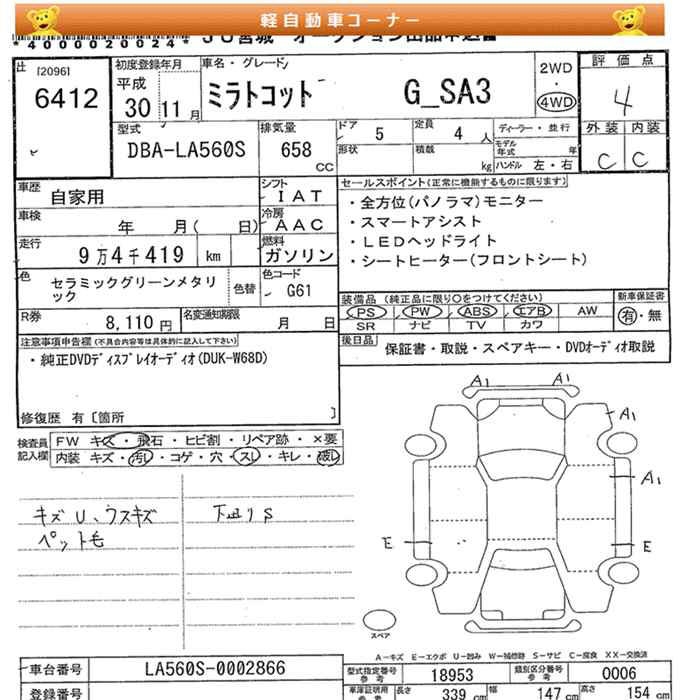 軽自動車コーナー
*4000020024* JU宮城 オークション出品申込書
出 [2096] 6412
初度登録年月 平成 30年 11月
車名・グレード ミラトコット G_SA3
2WD
4WD
評価点 4
外装 内装
C C
型式 DBA-LA560S
排気量 658 CC
ドア 5
定員 4 人
ディーラー・並行
形状
積載 kg
モデル年式 年
ハンドル 左・右
車歴 自家用
シフト IAT
車検 年 月( 日)
冷房 AAC
走行 9万4千419 km
燃料 ガソリン
色 セラミックグリーンメタリック
色替
色コード G61
R券 8,110円
名変通知期限 月 日
セールスポイント(正常に機能するものに限ります)
・全方位(パノラマ)モニター
・スマートアシスト
・LEDヘッドライト
・シートヒーター(フロントシート)
装備品(純正品に限り○をつけてください)
PS PW ABS エアB AW
SR ナビ TV カワ
新車保証書 有・無
後日品 保証書・取説・スペアキー・DVDオーディオ取説
注意事項申告欄(不具合内容等は具体的に記入して下さい)
・純正DVDディスプレイオーディオ(DUK-W68D)
修復歴 有〔箇所 〕
検査員記入欄
FW キズ・飛石・ヒビ割・リペア跡・×要
内装 キズ・汚レ・コゲ・穴・スレ・キレ・破レ
キズU、ウスキズ
ペット毛
下廻りS
A1 A1
A1
A1
E E
スペア
A-キズ E-エクボ U-凹み W-補修跡 S-サビ C-腐食 XX-交換済
車台番号 LA560S-0002866
登録番号
型式指定番号 参考 18953
類別区分番号 参考 0006
車庫証明用 参考 長さ 339 cm 幅 147 cm 高さ 154 cm